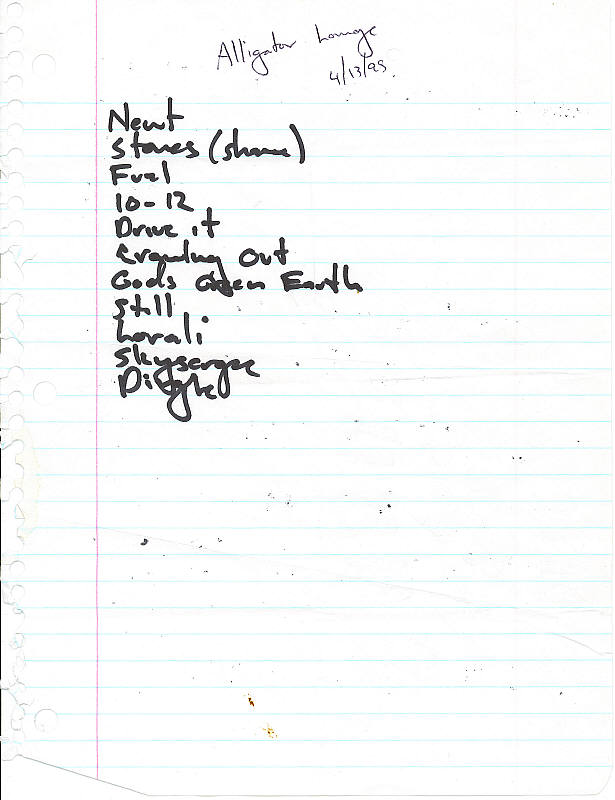 Alligator Lounge
4/13/95
Newt
Stones (shame)
Fuel
10-12
Drive it
Crawling Out
Gods Green Earth
Still
Lorali
Skyscraper